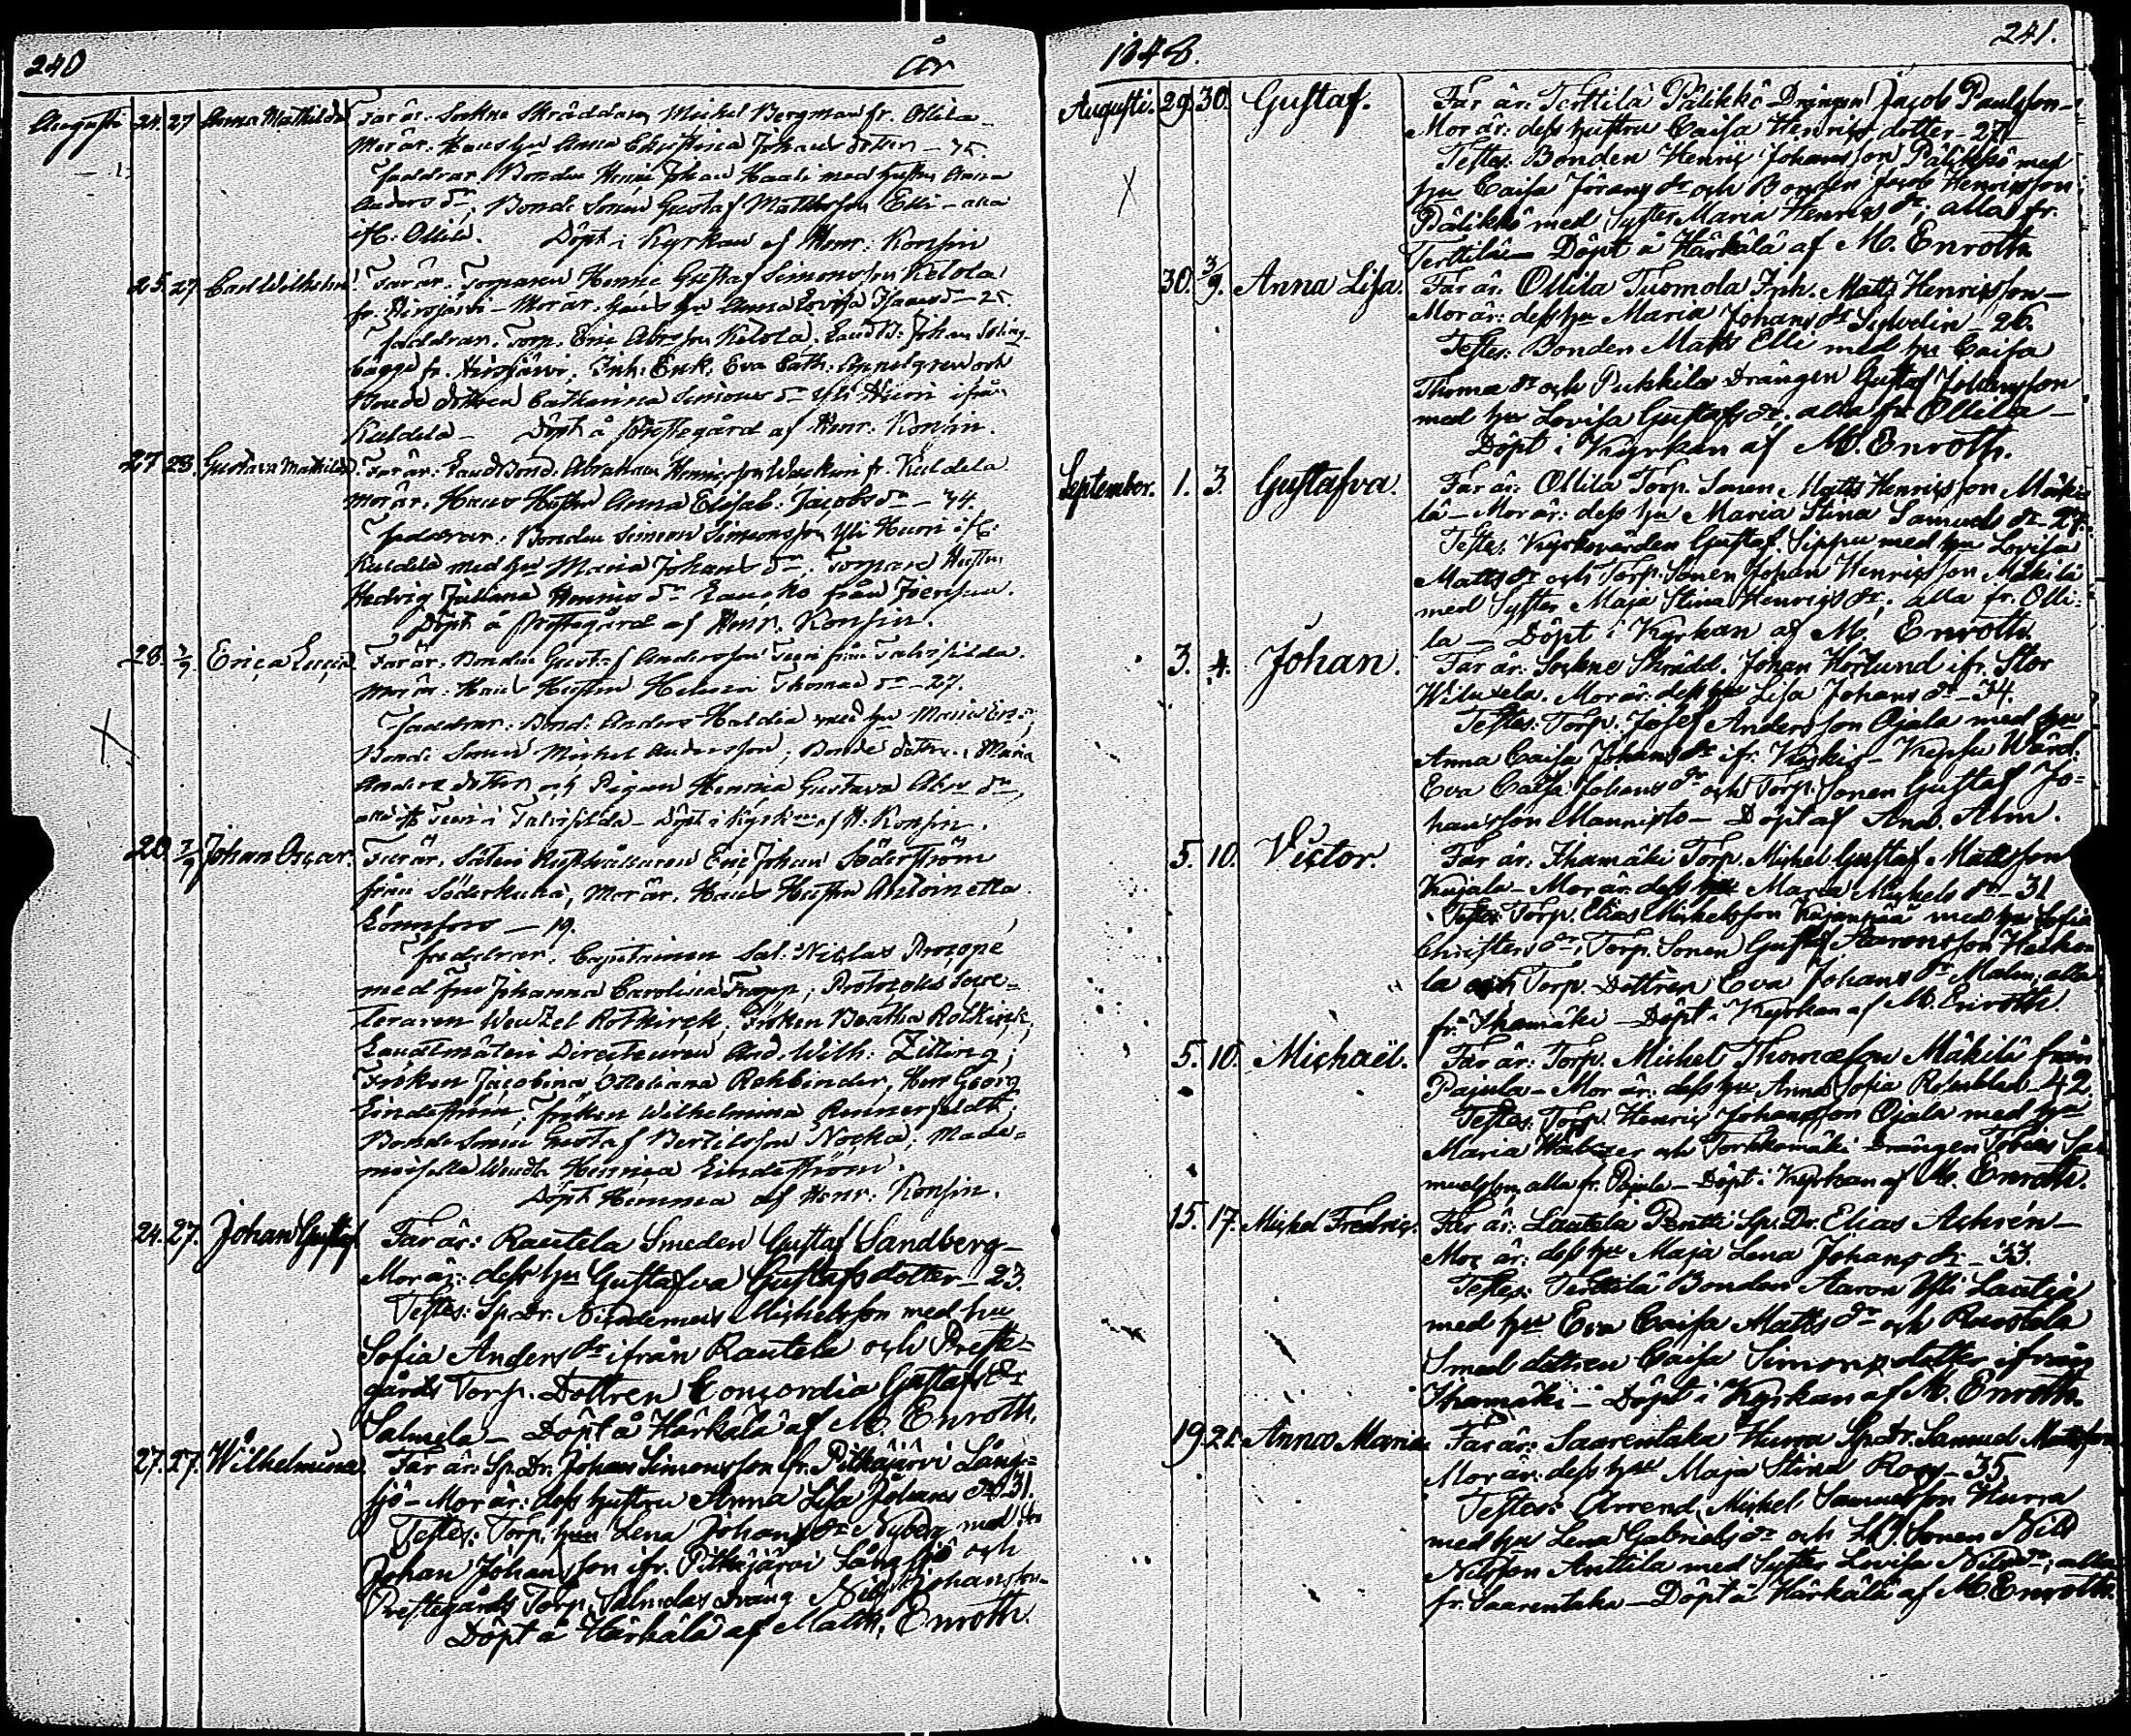 240
år
Augusti 24. 27 Anna Mathilda Far är. Sockne Skräddaren Michel Bergman fr. Ollila
Mor är. Hans hu Anna Christina Johans dotter — 35.
Faddrar. Bonden Henric Johan Haali med hustru Anna
Anders dr, Bonde Sonen Gustaf Mattsson Elli — alla
ifr. Ollila. Döpt i Kyrkan af Henr. Konsin
25. 27 Carl Wilhelm. Far är. Torparen Henric Gustaf Simonsson Ketola
fr. Hirsjärvi — Mor är. Hans hu Anna Lovisa Isaacs dr — 25.
Faddrar. Torp. Eric Abrsson Ketola. Johan
fr. Hirsjärvi. Inh. Enk. Eva Cath. Appelgren och
Bonde dottren Catharina Simons dr Yli Hurri ifrån
Kuldela — Döpt å Prestegård af Henr. Konsin.
27 28. Gustava Mathilda. Far är. Landbond. Abraham Henricsson fr. Kuldela
Mor är. Hans Hustru Anna Elisab. Jacobs dr — 34.
Faddrar. Bonden Simon Simonsson Yli Hurri ifr.
Kuldela med hu Maria Johans dr. Torpare Hustru
Hedvig Juliana Henrics dr från
Döpt å Prestegård af Henr. Konsin.
28. 3/9 Erica Far är. Bonden Gustaf Andersson från
Mor är. Hans Hustru Henrica Thomas dr — 27.
Faddrar. Bond. Anders Haldia med hu Maria
Bonde Sonen Michel Andersson; Bonde dottren Maria
Anders dotter och Pigan Henrica Gustava Abrs dr,
Döpt i Kyrkan af H. Konsin.
20 3/9 Johan Oscar. Far är. Säteri Eric Johan Söderström
från Söderkulla, Mor är. Hans Hustru Antoinetta
Lönnfors — 19.
Faddrar. Capitainen Sal. Niclas Procopé
med fru Johanna Carolina Frapp; Protocolls Secre=
teraren Wentzel Rotkirck, Fröken Beatha Rotkirck,
Landtmäteri Directeuren And. Wilh. Zilling;
Fröken Jacobina Ottiliana Rehbinder, Herr Georg
Lindström, Fröken Wilhelmina Rennerfeldt,
Bonde Sonen Gustaf Bertilsson Nocka; Made=
moiselle Henrica Lindström.
Döpt Hemma af Henr. Konsin.
24. 27. Johan Gustaf. Far är: Rautela Smeden Gustaf Sandberg —
Mor är: dess hu Gustafva Gustafs dotter — 23.
Testes: Sp.Dr. Nicodemus Michelsson med hu
Sofia Anders dr ifrån Rautela och Preste=
gårds Torp. Dottren Concordia Gustafs dr
Salmela — Döpt å Härkälä af M. Enroth.
27. 27. Wilhelmina. Far är: Sp.Dr. Johan Simonsson fr. Pitkäjärvi Lång=
sjö — Mor är: dess hustru Anna Lisa Johans dr 31.
Testes: Torp. hun Lena Johans dr Nyberg med
Johan Johansson ifr. Pitkäjärvi Långsjö och
Prestegårds Torp. Salmelas dräng Nils Johansson —
Döpt å Härkälä af Matth. Enroth.
1848.
241.
Augusti. 29. 30. Gustaf. Far är: Terttilä Pälikkö Drängen Jacob Paulsson —
Mor är: dess hustru Caisa Henrics dotter — 27.
Testes: Bonden Henric Johansson Pälikkö med
hu Caisa Jörans dr och Bonden Jacob Henricsson
Pälikkö med Syster Maria Henrics dr; alla fr.
Terttilä — Döpt å Härkälä af M. Enroth
30. 3/9. Anna Lisa. Far är: Ollila Tuomola Inh. Matts Henricsson —
Mor är: dess hu Maria Johans dr — 26.
Testes: Bonden Matts Elli med hu Caisa
Thomæ dr och Pukkila Drängen Gustaf Johansson
med hu Lovisa Gustafs dr. alla fr Ollila —
Döpt i Kyrkan af M. Enroth.
September. 1. 3. Gustafva. Far är: Ollila Torp. Sonen Matts Henricsson Mäki=
lä — Mor är: dess hu Maria Stina Samuels dr — 27.
Testes: Kyrkovärden Gustaf Sippu med hu Lovisa
Matts dr och Torp. Sonen Johan Henricsson Mäkilä
med Syster Maja Stina Henrics dr; alla fr. Olli:
la — Döpt i Kyrkan af M. Enroth.
3. 4. Johan. Far är: Sockne Skrädd. Johan Hörlund ifr. Stor
Wiluxela. Mor är: dess hu Lisa Johans dr — 34.
Testes: Torp. Josef Andersson Ojala med hu
Anna Caisa Johans dr ifr. Koskis —
Eva Caisa Johans dr och Torp. Sonen Gustaf Jo=
hansson Mannisto — Döpt af And. Alm.
5. 10. Victor. Far är: Ihamäki Torp. Michel Gustaf Mattsson
Kujala — Mor är: dess hu Maria Michels dr — 31
Testes: Torp. Elias Michelsson Kujanpää med hu Sofia
Christers dr, Torp. Sonen Gustaf Aaronsson Heikko
la och Torp. Dottren Eva Johans dr Malm; alla
fr. Ihamäki — Döpt i Kyrkan af M. Enroth.
5. 10. Michaël. Far är: Torp. Michel Thomæson Mäkilä från
Pajula — Mor är: dess hu Anna Sofia Rosenblad — 42.
Testes: Torp. Henric Johansson Ojala med hu
Maria och Torkkomäki Drängen Tobias Sa
muelsson alla fr. Pajula — Döpt i Kyrkan af M. Enroth.
15. 17. Michel Fredric. Far är: Lautela Pentti Sp.Dr. Elias Achrén —
Mor är: dess hu Maja Lena Johans dr — 33.
Testes: Terttilä Bonden Aaron Yli Lautia
med hu Eva Caisa Matts dr och Rautela
Smed dottren Caisa Simons dotter ifrån
Ihamäki — Döpt i Kyrkan af M. Enroth.
19. 21. Anna Maria Far är: Saarentaka Hurra Sp.Dr. Samuel Mattsson
Mor är: dess hu Maja Stina Roos — 35
Testes: Arrend. Michel Samuelsson Hurra
med hu Lena Gabriels dr och Sonen Nils
Nilsson Anttila med Syster Lovisa Nils dr, alla
fr. Saarentaka — Döpt å Härkälä af M. Enroth.